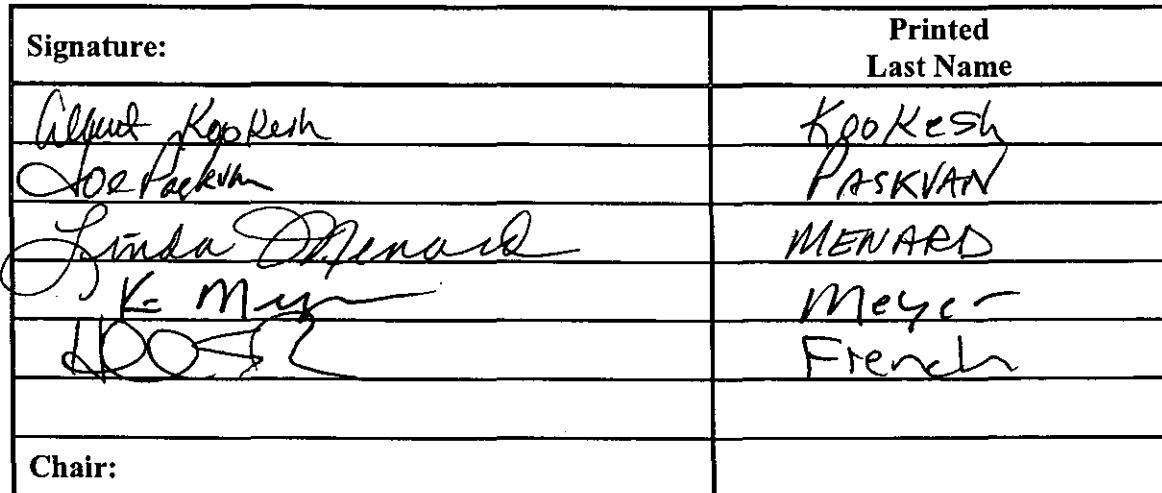 Signature: Printed
Last Name
Albert Kookesh Kookesh
Joe Paskvan PASKVAN
Linda Menard MENARD
K. Meyer Meyer
French
Chair: